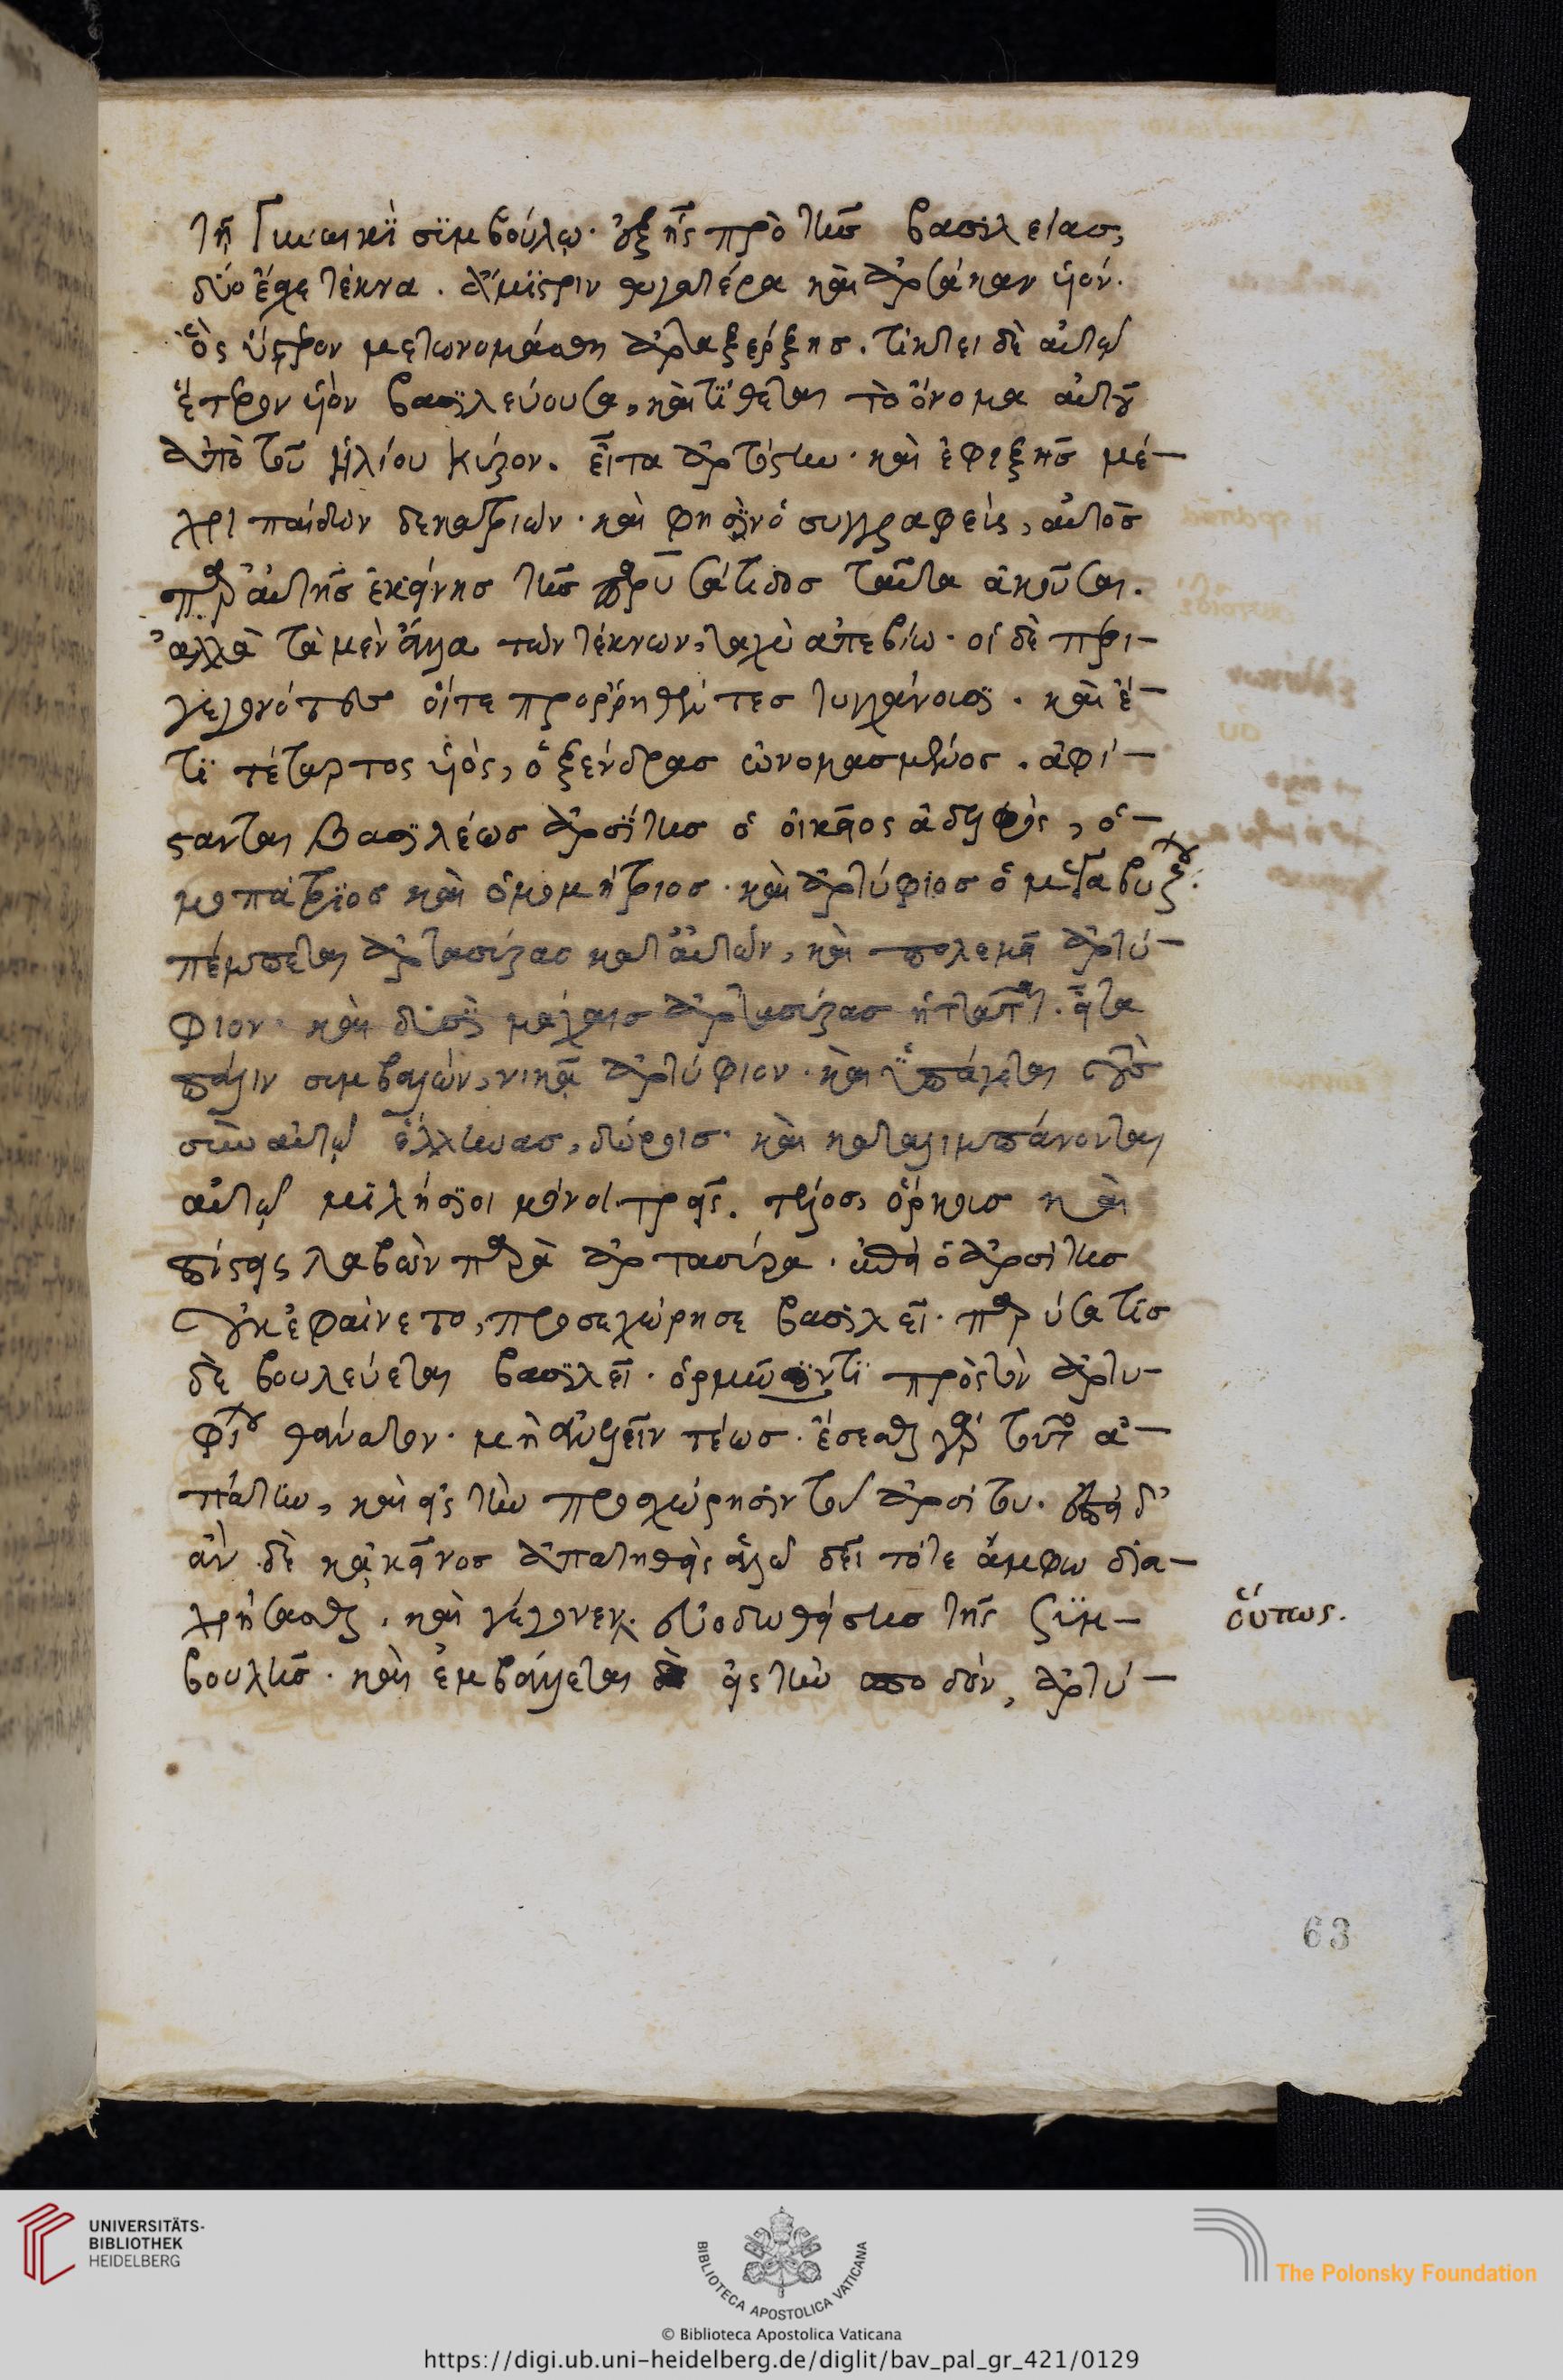 τῇ γυναικὶ συμβούλῳ. ἐξ ἧς πρὸ τῆς βασιλείας,
δύο ἔσχε τέκνα. ἄμιστριν θυγατέρα καὶ ἀρσάκαν υἱόν.
ὃς ὕστερον μετωνομάσθη ἀρταξέρξης. τίκτει δὲ αὐτῷ
ἕτερον υἱὸν βασιλεύουσα, καὶ τίθεται τὸ ὄνομα αὐτοῦ
ἀπὸ τοῦ ἡλίου κύρον. εἶτα ἀρτόστην. καὶ ἐφεξῆς μέ-
χρι παίδων δεκατριῶν. καὶ φησὶν ὁ συγγραφεὺς, αὐτὸς
παρ' αὐτῆς ἐκείνης τῆς παρυσάτιδος ταῦτα ἀκοῦσαι.
ἀλλὰ τὰ μὲν ἄλλα τῶν τέκνων, ταχὺ ἀπεβίω. οἱ δὲ περι-
γεγονότες οἵτε προρρηθέντες τυγχάνουσι. καὶ ἔ-
τι τέταρτος υἱὸς, ὀξένδρας ὠνομασμένος. ἀφί-
στανται βασιλέως ἀρσίτης ὁ οἰκεῖος ἀδελφὸς, ὁ-
μοπάτριος καὶ ὁμομήτριος. καὶ ἀρτύφιος ὁ μεγαβύζου.
πέμπεται ἀρτασύρας κατ' αὐτῶν, καὶ πολεμεῖ ἀρτύ-
φιον. καὶ δυσὶ μάχαις ἀρτασύρας ἡττᾶται. εἶτα
πάλιν συμβαλὼν, νικᾷ ἀρτύφιον. καὶ ὑπάγεται τοὺς
σὺν αὐτῷ ἕλληνας, δώροις. καὶ καταλιμπάνονται
αὐτῷ μιλήσιοι μόνοι τρεῖς. τέλος, ὅρκους καὶ
πίστεις λαβὼν παρὰ ἀρτασύρα. ἐπεὶ ὁ ἀρσίτης
οὐκ ἐφαίνετο, προσεχώρησε βασιλεῖ. παρύσατις
δὲ βουλεύεται βασιλεῖ. ὁρμῶντι πρὸς τὸν ἀρτυ-
φίου θάνατον. μὴ ἀνελεῖν τέως. ἔσεσθαι γὰρ τοῦτο ἀ-
πάτην, καὶ εἰς τὴν προχώρησιν τοῦ ἀρσίτου. ἐπειδ'
ἂν δὲ κἀκεῖνος ἀπατηθεὶς ἁλῷ δεῖ τότε ἄμφω δια-
χρήσασθαι. καὶ γέγονεν. εὐοδωθείσης τῆς συμ-
οὕτως.
βουλῆς. καὶ ἐμβάλλεται εἰς τὴν σποδόν, ἀρτύ-
63
UNIVERSITÄTS-
BIBLIOTHEK
HEIDELBERG
BIBLIOTECA APOSTOLICA VATICANA
The Polonsky Foundation
© Biblioteca Apostolica Vaticana
https://digi.ub.uni-heidelberg.de/diglit/bav_pal_gr_421/0129